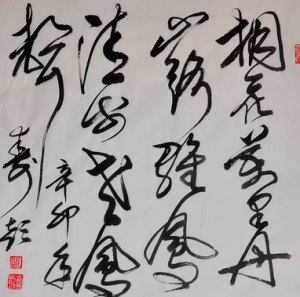 桐花万里丹
山路雏凤
清于老凤
声 辛卯年
寿彭